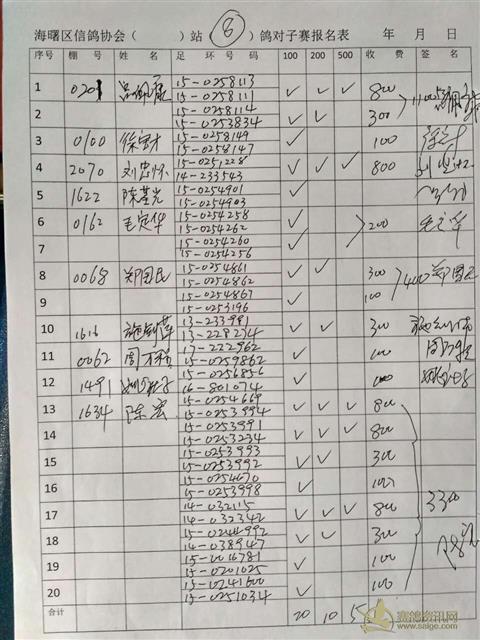 海曙区信鸽协会（ ）站 6 鸽对子赛报名表 年 月 日
序号 棚号 姓名 足环号码 100 200 500 收费 签名
1 0201 15-0258113 ✓ ✓ ✓ 800
15-0258111
2 15-0258114 ✓ ✓ 300 1100
15-0253834
3 0100 徐宝才 15-0258149 ✓ 100
15-0258147
4 2070 刘忠怀 15-0251228 ✓ ✓ ✓ 800
14-233543
5 1622 陈莹光 15-0254901 ✓
15-0254903
6 0162 毛定华 15-0254258 ✓ 200 毛定华
15-0254262
7 15-0254260 ✓
15-0254256
8 0068 郑国民 15-0254861 ✓ ✓ 300 400 郑国民
15-0254862
9 15-0254867 ✓ 100
15-0253196
10 1616 13-233991 ✓ ✓ 300
13-228274
11 0062 周万精 17-222962 ✓ 100
15-0259862
12 1491 15-0256856 ✓ 100
16-801074
13 1634 陈宏 15-0254669 ✓ ✓ ✓ 800
15-0253994
14 15-0253991 ✓ ✓ ✓ 800
15-0253234
15 15-0253993 ✓ ✓ 300
15-0253992
16 15-0254670 ✓ 100
15-0253998
17 14-032115 ✓ ✓ ✓ 800 3300
14-032342
18 15-0244992 ✓ ✓ 300
14-038947
19 15-0016781 ✓ 100
15-0201025
20 15-0241600 ✓ 100
15-0251034
合计 20 10 5
赛鸽资讯网
www.saige.com